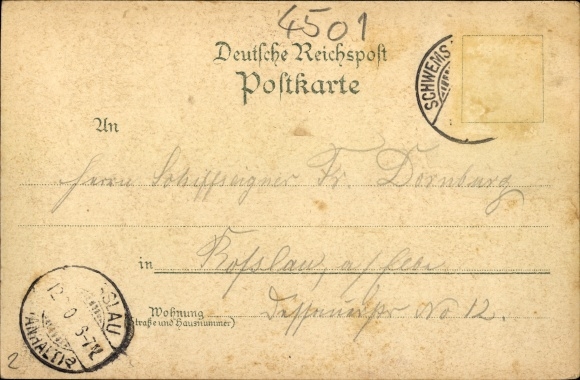 4501
Deutsche Reichspost
Postkarte
SCHWEMS
An
Herrn Schiffseigner Fr. Dornburg
in Rosslau, a/Elbe
Wohnung
(Straße und Hausnummer)
Dessauerstr No 12.
SLAU
12 0 6-7N
(ANHALT)
2